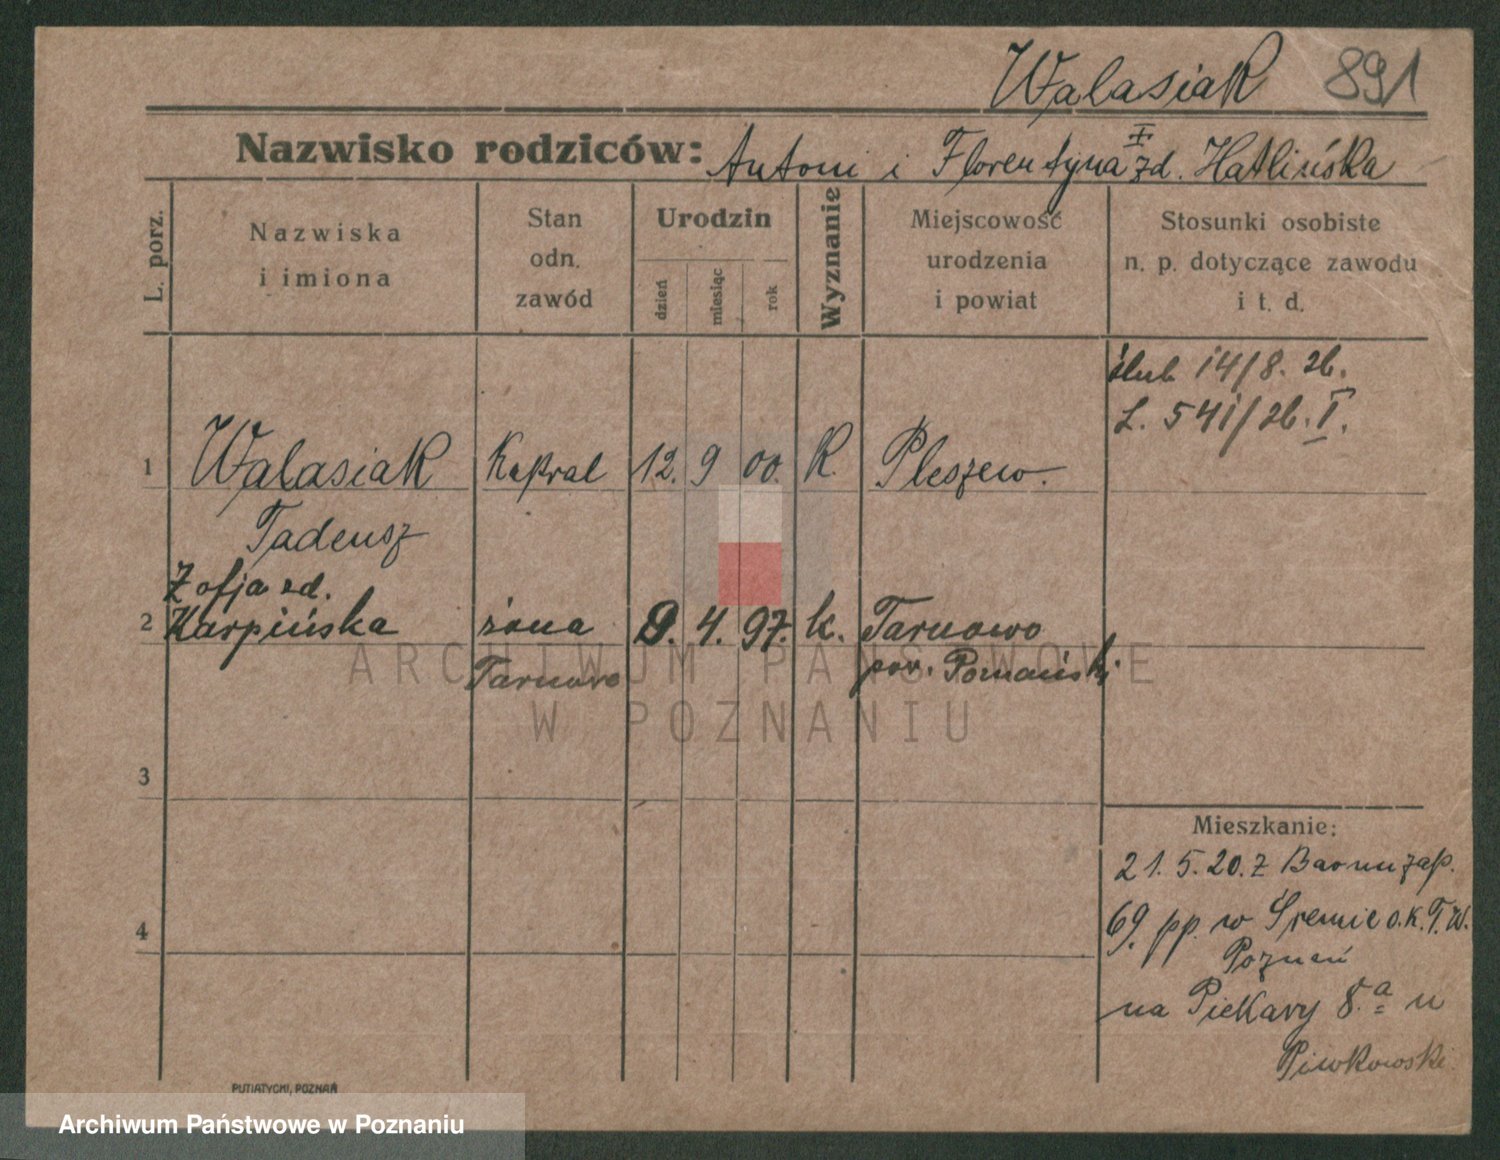 Walasiak 891
Nazwisko rodziców: Antoni i Florentyna zd. Hatlińska
I
L. porz.
Nazwiska
i imiona
Stan
odn.
zawód
Urodzin
dzień
miesiąc
rok
Wyznanie
Miejscowość
urodzenia
i powiat
Stosunki osobiste
n. p. dotyczące zawodu
i t. d.
ślub 14/8. 26.
L. 541/26. I.
1 Walasiak Kapral 12. 9 00. K. Pleszew.
Tadeusz
Zofja zd.
2 Karpińska żona 9. 4. 97. k. Tarnowo
Tarnowo pow. Poznański.
3
4
Mieszkanie:
21. 5. 20. z
69. pp. w Śremie
Poznań
na Piekary 8.a u
Piwkowski
PUTIATYCKI, POZNAŃ
ARCHIWUM PAŃSTWOWE
W POZNANIU
Archiwum Państwowe w Poznaniu